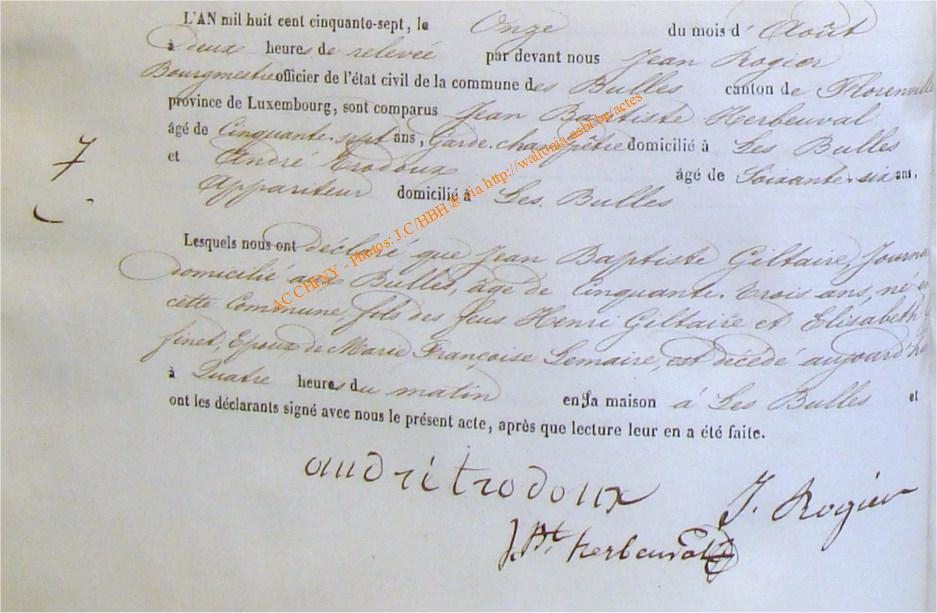 L'AN mil huit cent cinquante-sept, le Onze du mois d'Août
à deux heures de relevée par devant nous Jean Rogier
Bourgmestre officier de l'état civil de la commune des Bulles canton de Florenville
province de Luxembourg, sont comparus Jean Baptiste Herbeuval
âgé de Cinquante-sept ans, Garde-champêtre domicilié à Les Bulles
7 et André Trodoux âgé de Soixante-six ans,
Appariteur domicilié à Les Bulles
Lesquels nous ont déclaré que Jean Baptiste Giltaire, Journa
domicilié aux Bulles, âgé de Cinquante-trois ans, né e
cette Commune, fils des feus Henri Giltaire et Elisabeth
finet, Epoux de Marie Françoise Lemaire, est décédé aujourd'h
à Quatre heures du matin en sa maison à Les Bulles et
ont les déclarants signé avec nous le présent acte, après que lecture leur en a été faite.
andré trodoux J. Rogier
J. Bt herbeuval
ACCHINY - Photos: J.C/HBH © via http://wallonia-asbl.be/actes